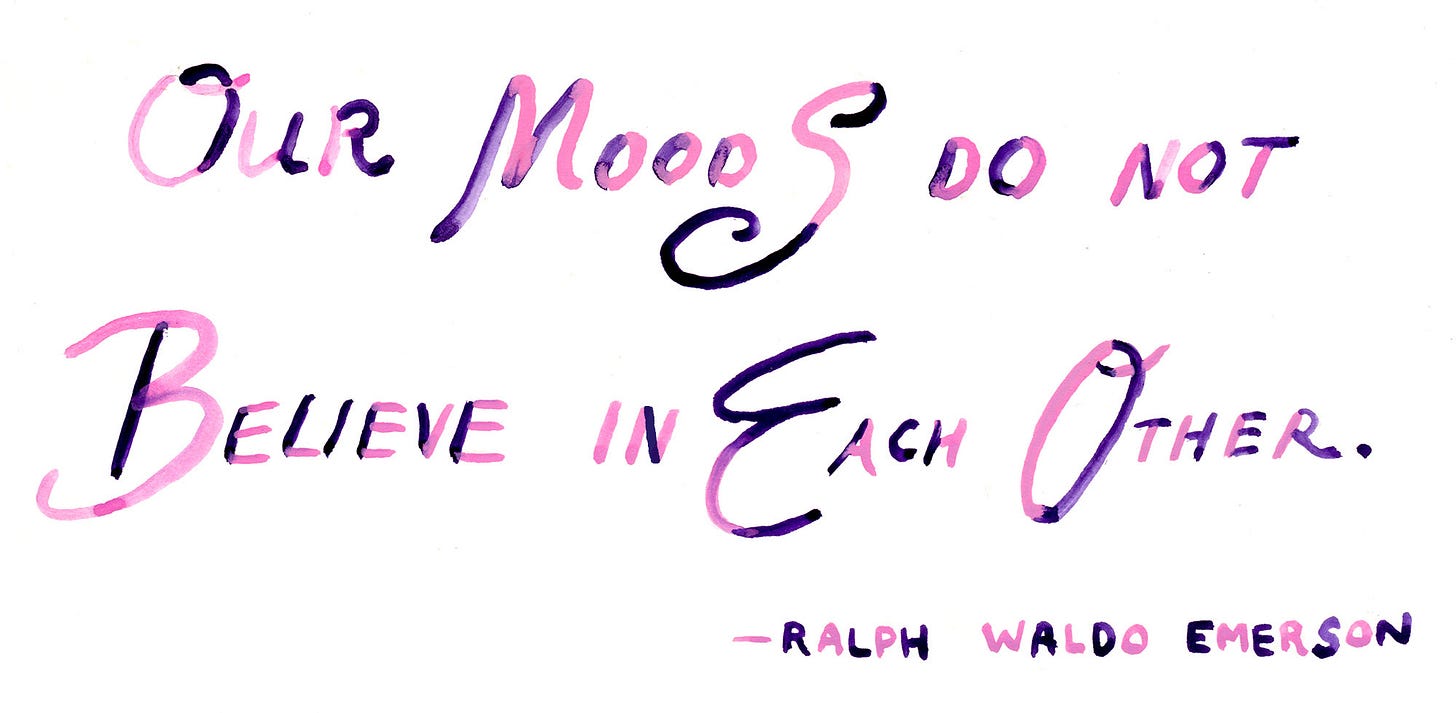 OUR MOODS DO NOT
BELIEVE IN EACH OTHER.
—RALPH WALDO EMERSON